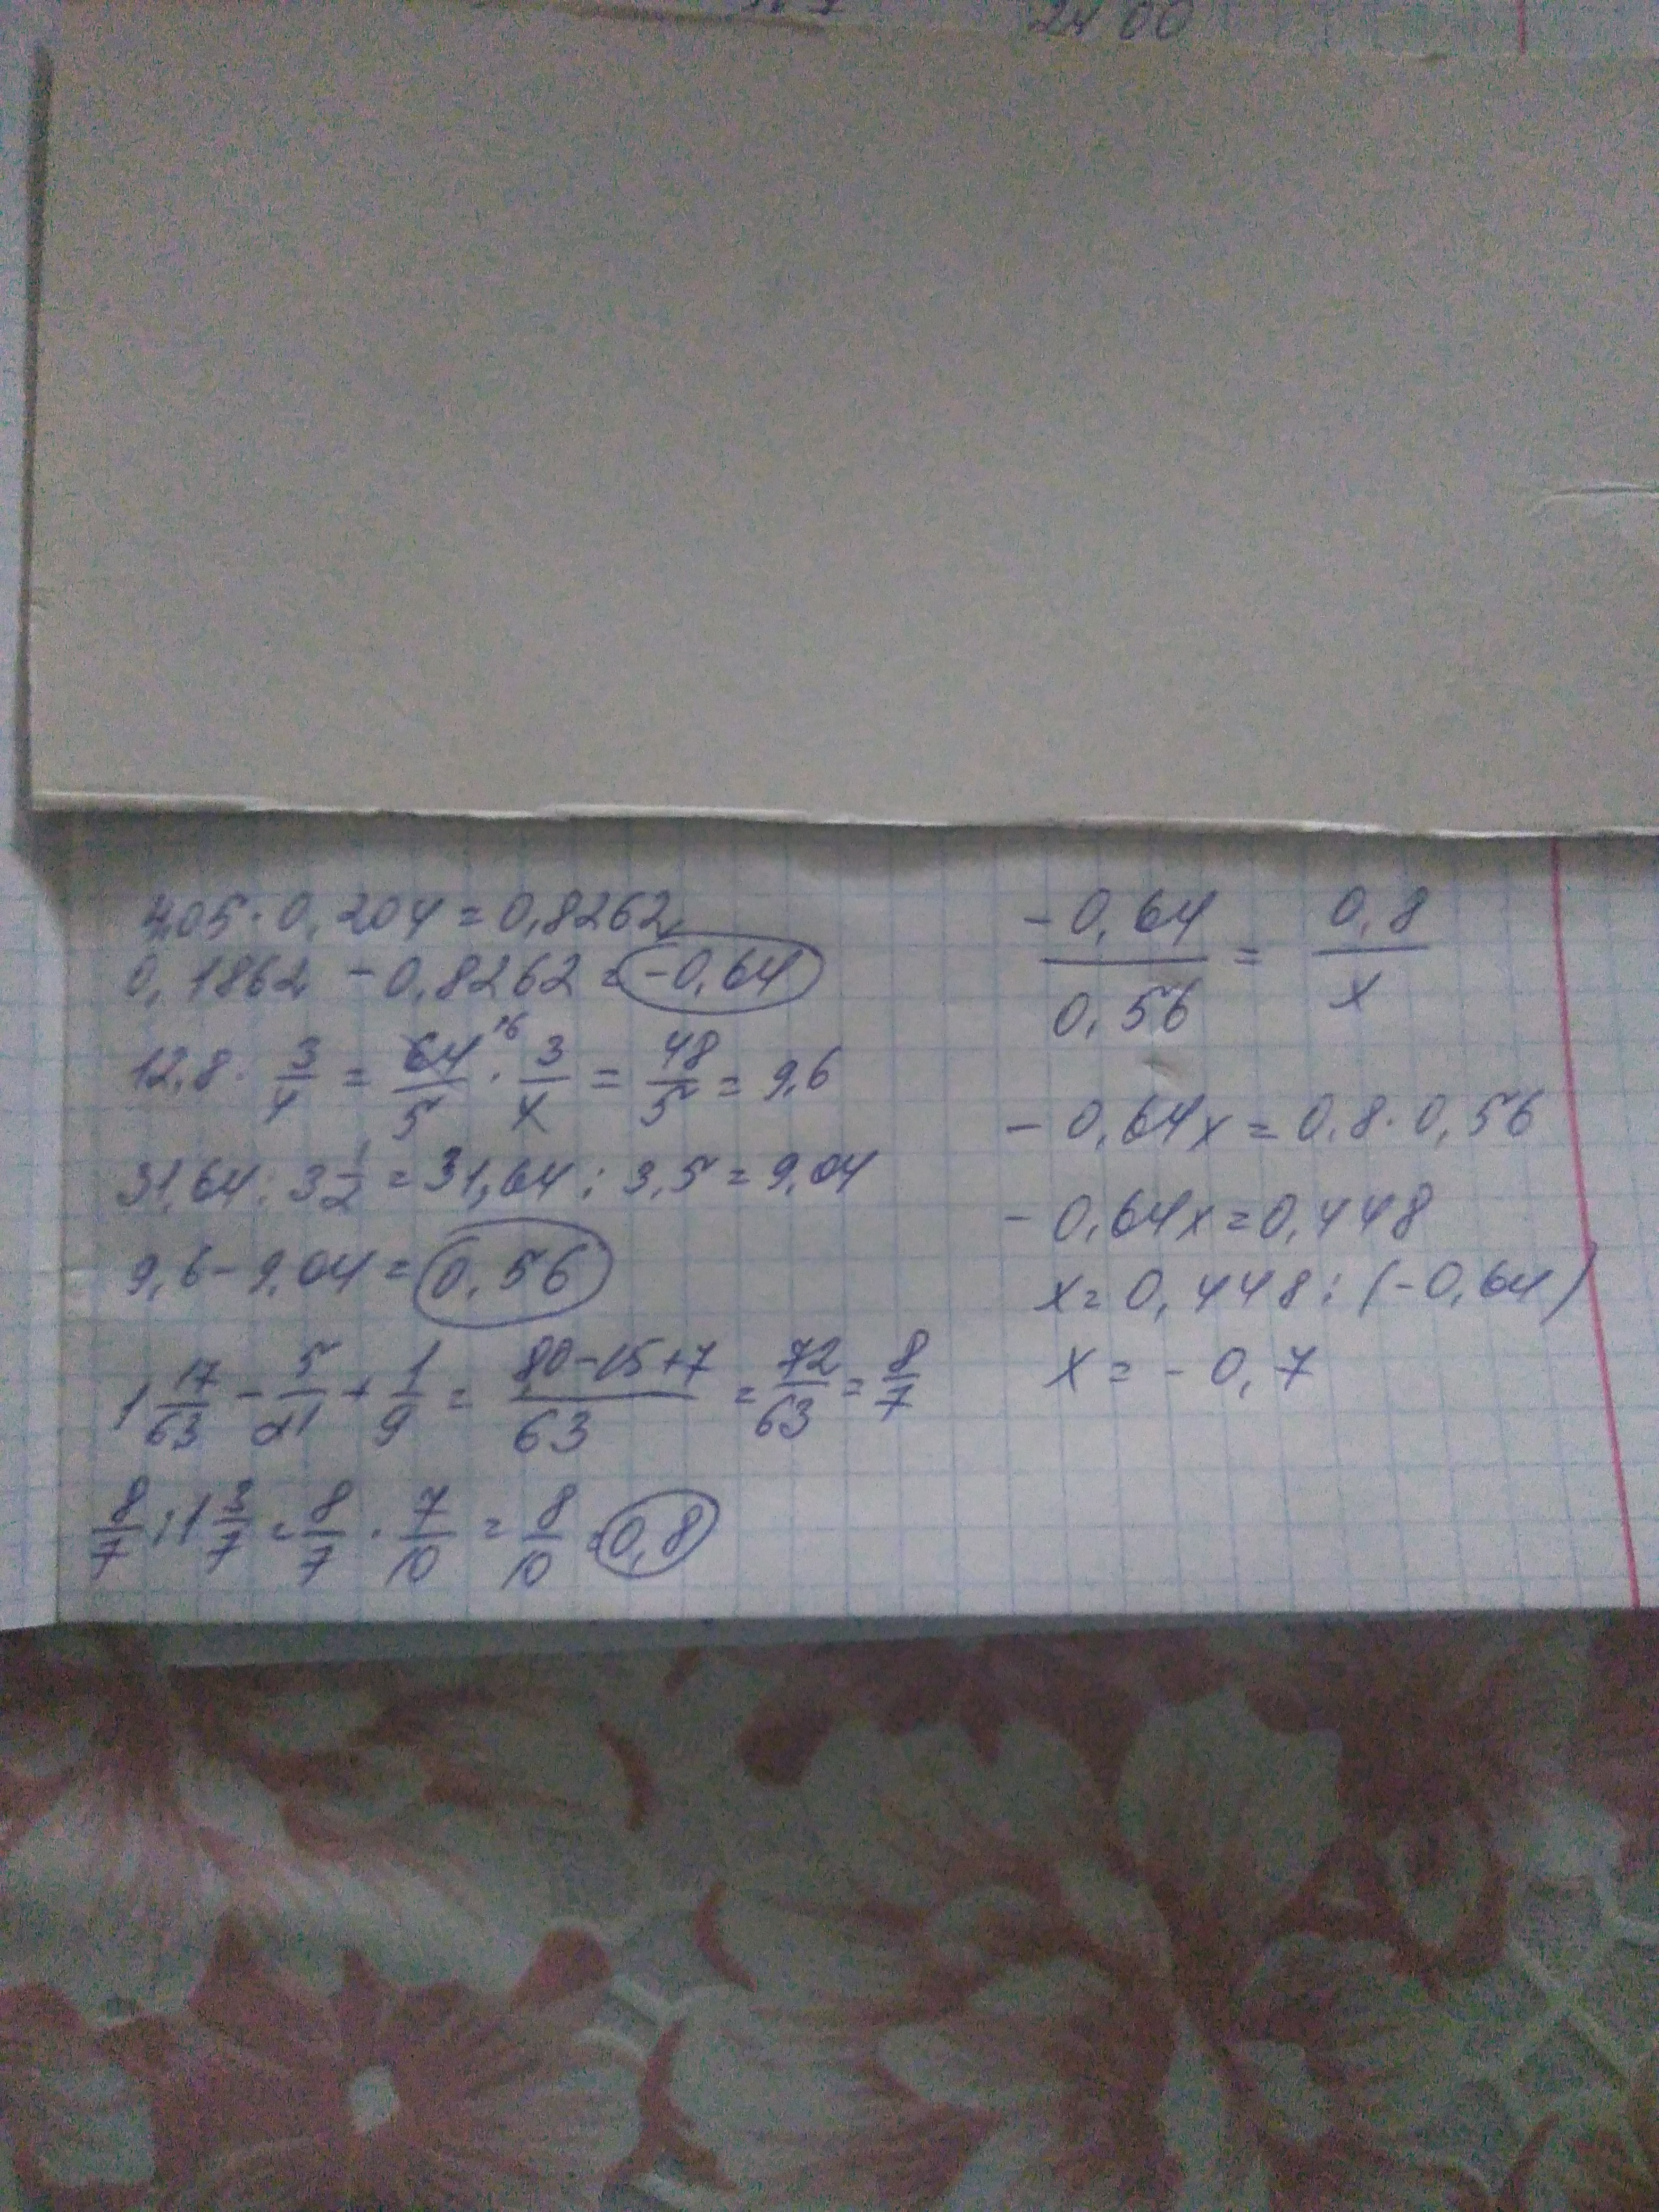 2400
4,05 · 0,204 = 0,8262
0,1862 - 0,8262 = -0,64
12,8 · 3/4 = 64/5 ¹⁶ · 3/4 = 48/5 = 9,6
31,64 : 3 1/2 = 31,64 : 3,5 = 9,04
9,6 - 9,04 = 0,56
1 17/63 - 5/21 + 1/9 = 80-15+7/63 = 72/63 = 8/7
8/7 : 1 3/7 = 8/7 · 7/10 = 8/10 = 0,8
-0,64/0,56 = 0,8/x
- 0,64x = 0,8 · 0,56
- 0,64x = 0,448
x = 0,448 : (-0,64)
x = - 0,7